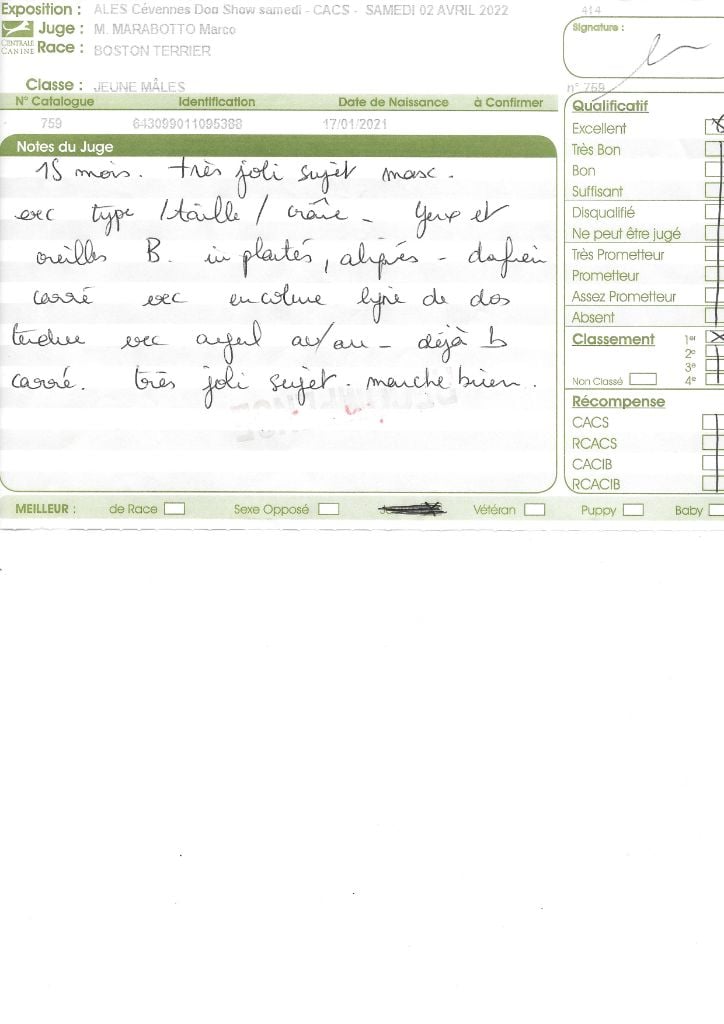 Exposition : ALES Cévennes Dog Show samedi - CACS - SAMEDI 02 AVRIL 2022 414
Juge : M. MARABOTTO Marco
CENTRALE CANINE
Race : BOSTON TERRIER
Signature :
Classe : JEUNE MÂLES n° 759
N° Catalogue Identification Date de Naissance à Confirmer
759 643099011095388 17/01/2021
Notes du Juge
15 mois. très joli sujet masc.
exc type / taille / crâne - yeux et
oreilles B. implantés, - 
carré exc encolure ligne de dos
tendue exc - déjà b
carré. très joli sujet. marche bien.
Qualificatif
Excellent
Très Bon
Bon
Suffisant
Disqualifié
Ne peut être jugé
Très Prometteur
Prometteur
Assez Prometteur
Absent
Classement 1er
2e
3e
Non Classé 4e
Récompense
CACS
RCACS
CACIB
RCACIB
MEILLEUR : de Race Sexe Opposé Vétéran Puppy Baby